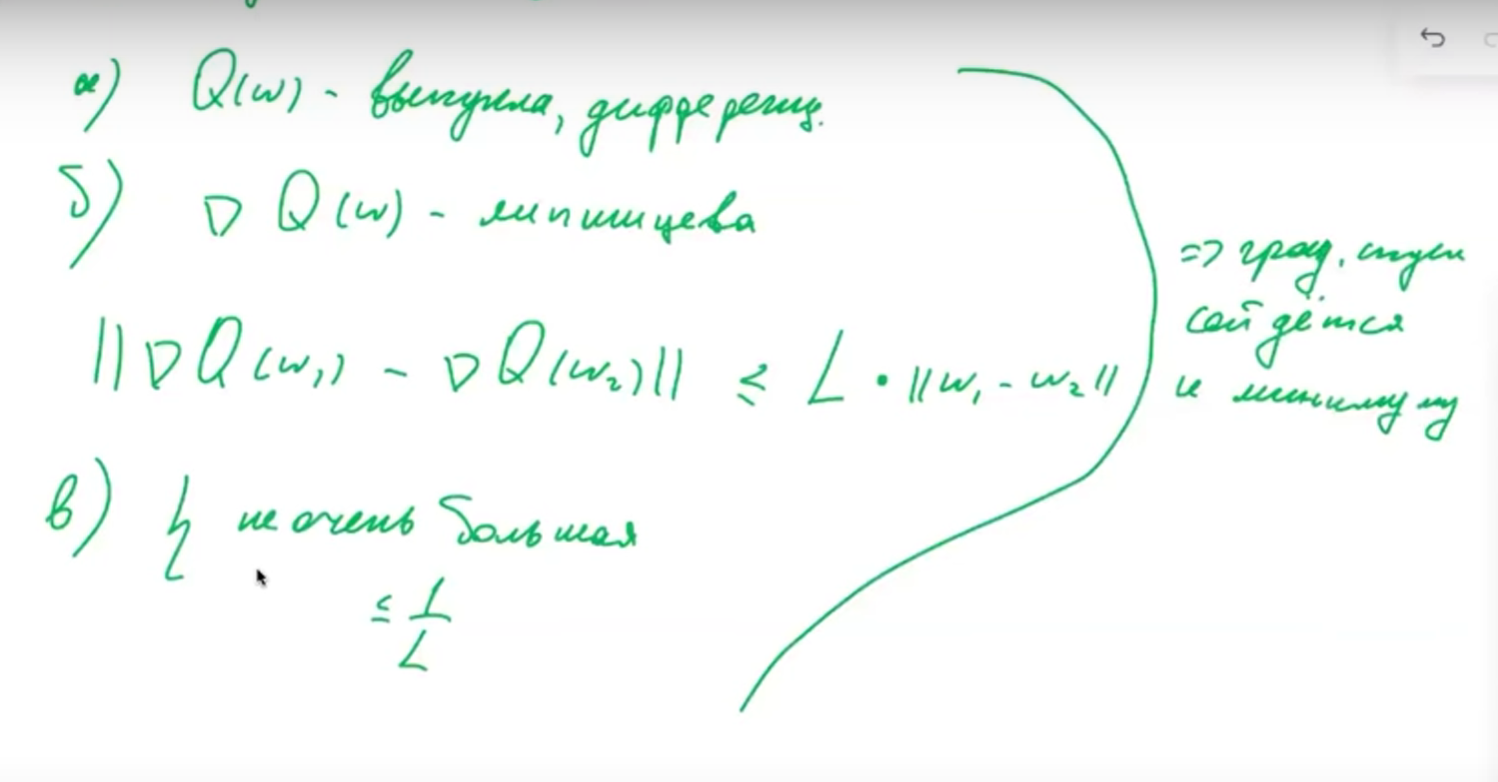 а) Q(w) - выпукла, дифференц.
б) ∇ Q(w) - липшицева
|| ∇Q(w₁) - ∇Q(w₂) || ≤ L · ||w₁ - w₂||
в) η не очень большая
≤ 1/L
=> град. спуск
сойдётся
к минимуму